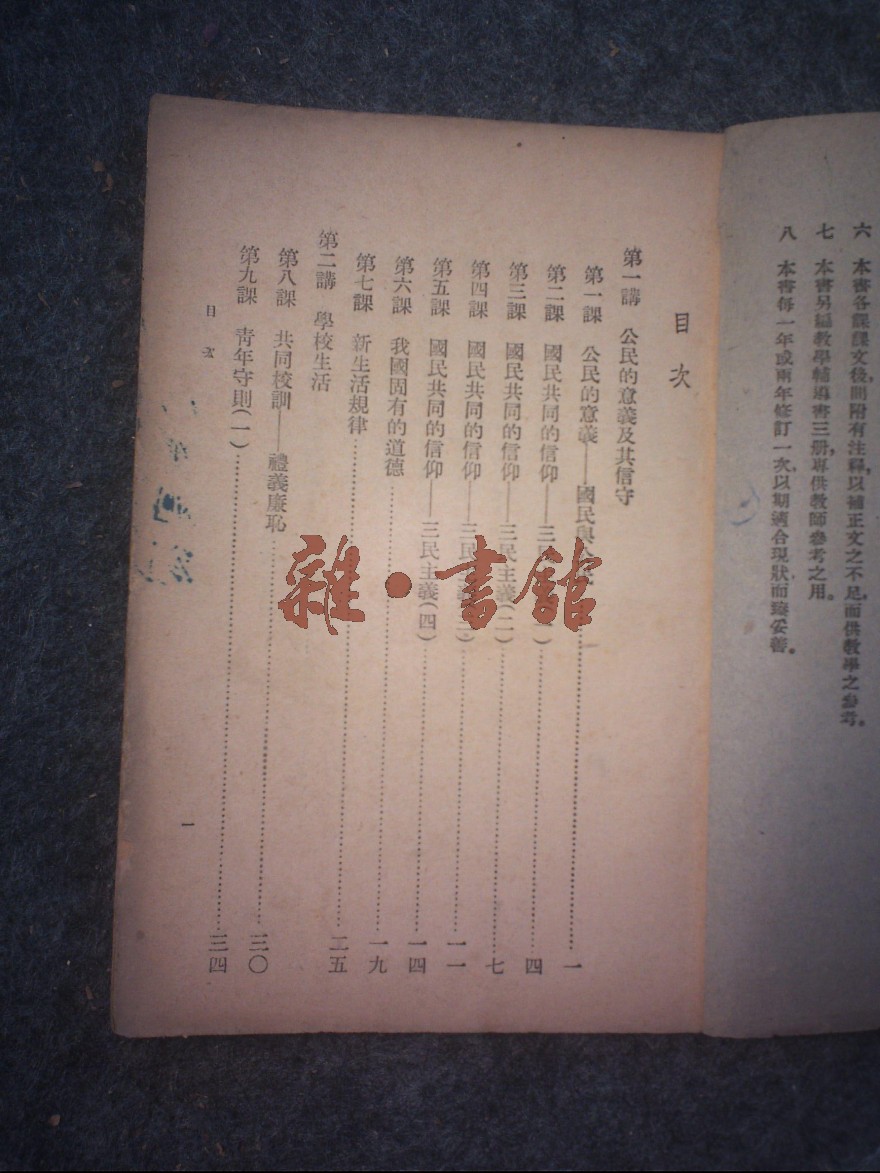 六　本書各課課文後間附有注釋，以補正文之不足而供教學之參考。
七　本書另編教學輔導書三册，專供教師參考之用。
八　本書每一年或兩年修訂一次，以期適合現狀而臻妥善。
目次
第一講　公民的意義及其信守
第一課　公民的意義——國民與…………一
第二課　國民共同的信仰——三…………四
第三課　國民共同的信仰——三民主義(二)…………七
第四課　國民共同的信仰——三民…………一一
第五課　國民共同的信仰——三民主義(四)…………一四
第六課　我國固有的道德…………一九
第七課　新生活規律…………二五
第二講　學校生活
第八課　共同校訓——禮義廉恥…………三〇
第九課　青年守則(一)…………三四
目次
一
雜·書館